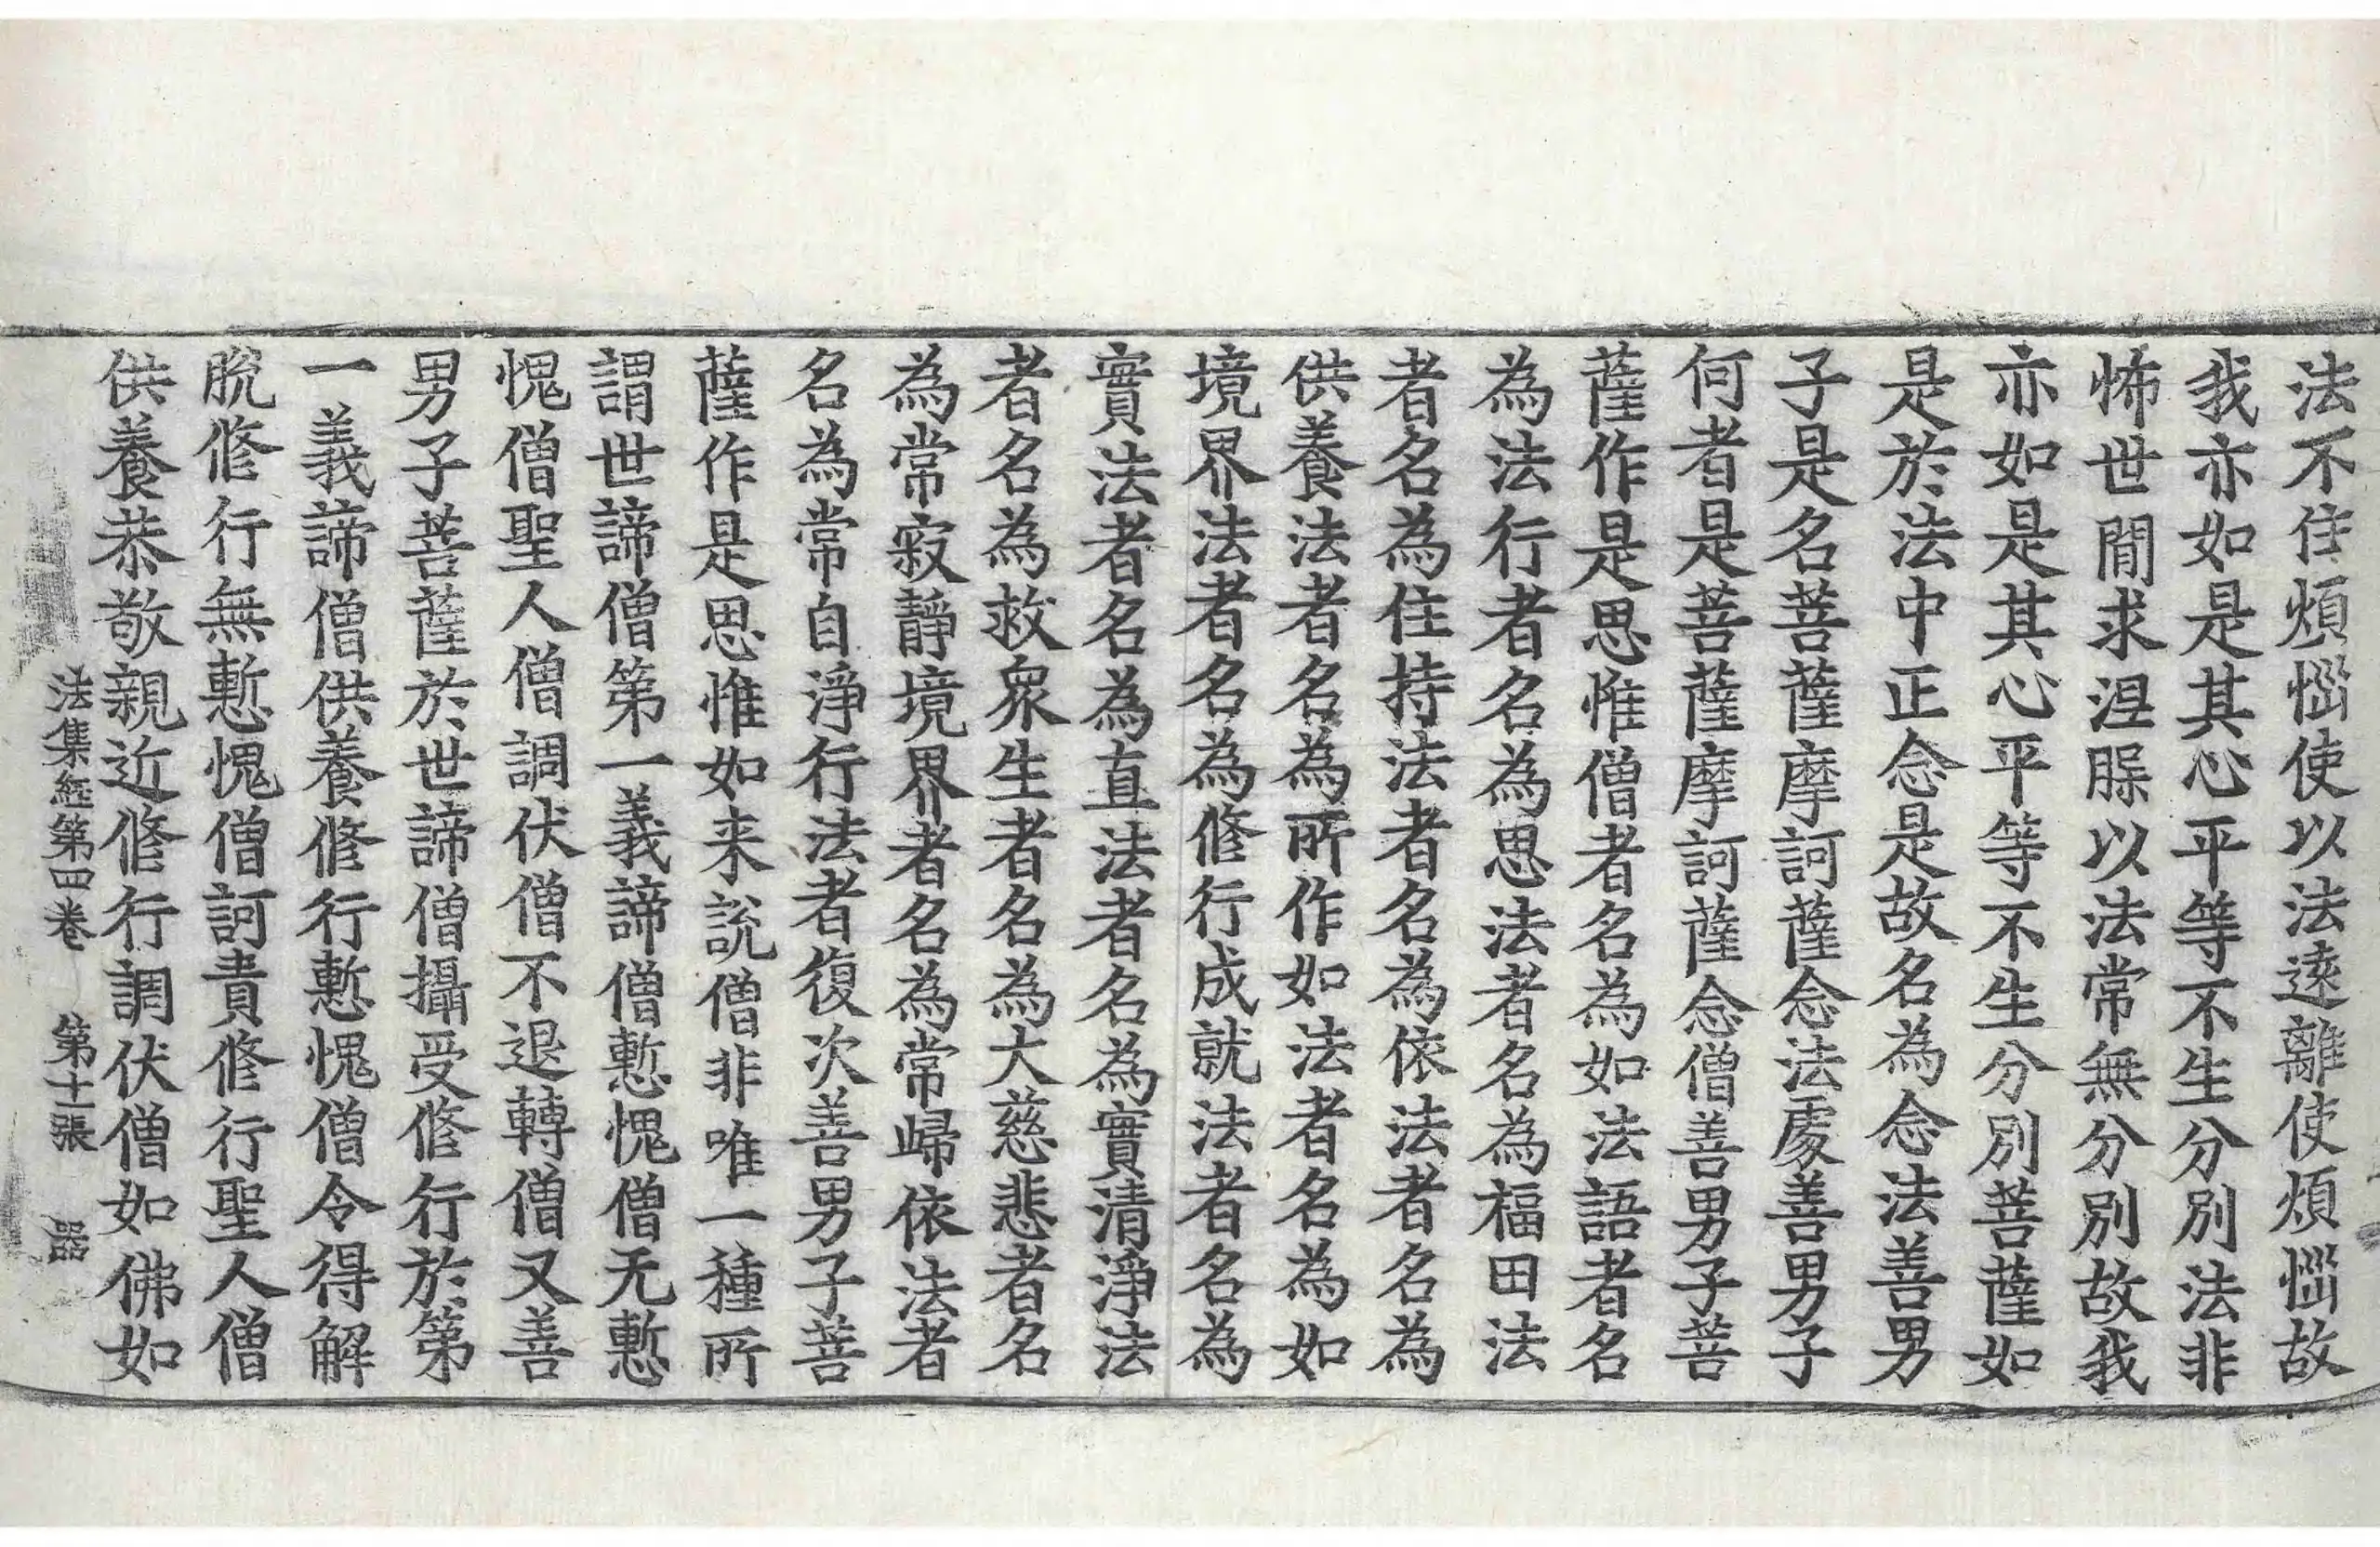 法不住煩惱使以法遠離使煩惱故
我亦如是其心平等不生分別法非
怖世間求涅槃以法常無分別故我
亦如是其心平等不生分別菩薩如
是於法中正念是故名為念法善男
子是名菩薩摩訶薩念法處善男子
何者是菩薩摩訶薩念僧善男子菩
薩作是思惟僧者名為如法語者名
為法行者名為思法者名為福田法
者名為住持法者名為依法者名為
供養法者名為所作如法者名為如
境界法者名為修行成就法者名為
實法者名為直法者名為實清淨法
者名為救眾生者名為大慈悲者名
為常寂靜境界者名為常歸依法者
名為常自淨行法者復次善男子菩
薩作是思惟如来說僧非唯一種所
謂世諦僧第一義諦僧慙愧僧无慙
愧僧聖人僧調伏僧不退轉僧又善
男子菩薩於世諦僧攝受修行於第
一義諦僧供養修行慙愧僧令得解
脫修行無慙愧僧訶責修行聖人僧
供養恭敬親近修行調伏僧如佛如
法集經第四卷 第十一張 器